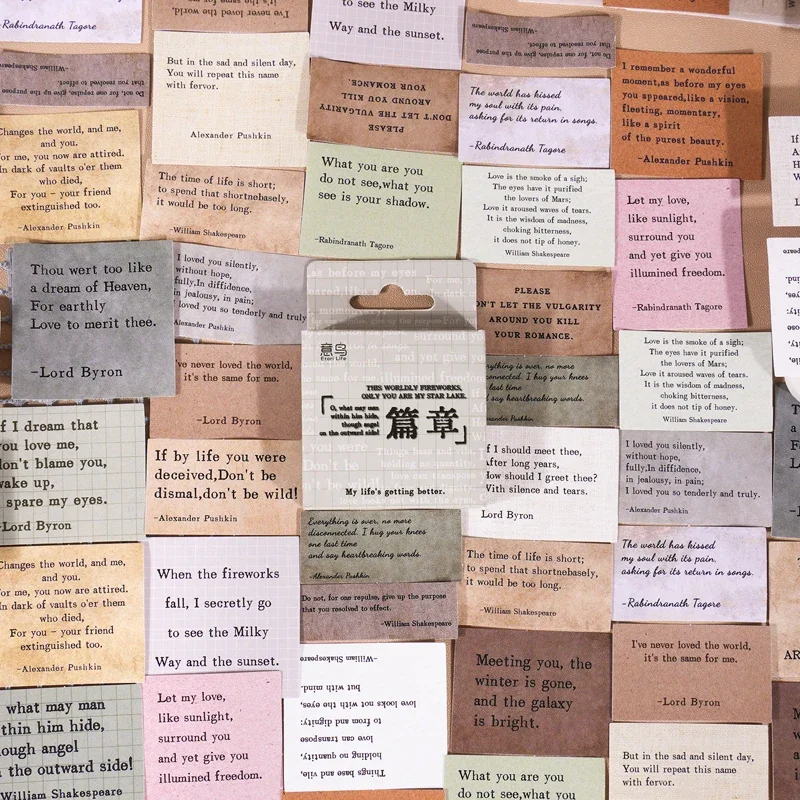 -Rabindranath Tagore
I've never loved the world,
it's the same for me.
to see the Milky
Way and the sunset.
Do not, for one repulse, give up the purpose
that you resolved to effect.
-William Shakespeare
Do not, for one repulse, give up the purpose
that you resolved to effect.
-William Shakespeare
But in the sad and silent day,
You will repeat this name
with fervor.
Alexander Pushkin
PLEASE
DON'T LET THE VULGARITY
AROUND YOU KILL
YOUR ROMANCE.
The world has kissed
my soul with its pain,
asking for its return in songs.
-Rabindranath Tagore
I remember a wonderful
moment,as before my eyes
you appeared,like a vision,
fleeting, momentary,
like a spirit
of the purest beauty.
-Alexander Pushkin
Changes the world, and me,
and you.
For me, you now are attired.
In dark of vaults o'er them
who died,
For you - your friend
extinguished too.
-Alexander Pushkin
The time of life is short;
to spend that shortnebasely,
it would be too long.
-William Shakespeare
What you are you
do not see,what you
see is your shadow.
-Rabindranath Tagore
Love is the smoke of a sigh;
The eyes have it purified
the lovers of Mars;
Love it aroused waves of tears.
It is the wisdom of madness,
choking bitterness,
it does not tip of honey.
William Shakespeare
Let my love,
like sunlight,
surround you
and yet give you
illumined freedom.
-Rabindranath Tagore
Thou wert too like
a dream of Heaven,
For earthly
Love to merit thee.
-Lord Byron
I loved you silently,
without hope,
fully,In diffidence,
in jealousy, in pain;
I loved you so tenderly and truly
Alexander Pushkin
PLEASE
ON'T LET THE VULGARITY
AROUND YOU KILL
YOUR ROMANCE.
as before my eyes
意鸟
Eteri Life
THIS WORLDLY FIREWORKS,
ONLY YOU ARE MY STAR LAKE.
「O, what may man
within him hide,
though angel
on the outward side!
篇章」
My life's getting better.
I've never loved the world,
it's the same for me.
-Lord Byron
everything is over, no more
disconnected. I hug your knees
last time
say heartbreaking words.
Alexander Pushkin
Love is the smoke of a sigh;
The eyes have it purified
the lovers of Mars;
Love it aroused waves of tears.
It is the wisdom of madness,
choking bitterness,
it does not tip of honey.
William Shakespeare
If I dream that
you love me,
don't blame you,
wake up,
spare my eyes.
-Lord Byron
If by life you were
deceived,Don't be
dismal,don't be wild!
-Alexander Pushkin
If I should meet thee,
After long years,
How should I greet thee?
With silence and tears.
Lord Byron
I loved you silently,
without hope,
fully,In diffidence,
in jealousy, in pain;
I loved you so tenderly and truly.
-Alexander Pushkin
Everything is over, no more
disconnected. I hug your knees
one last time
and say heartbreaking words.
-Alexander Pushkin
Changes the world, and me,
and you.
For me, you now are attired.
In dark of vaults o'er them
who died,
For you - your friend
extinguished too.
-Alexander Pushkin
When the fireworks
fall, I secretly go
to see the Milky
Way and the sunset.
Do not, for one repulse, give up the purpose
that you resolved to effect.
-William Shakespeare
The time of life is short;
to spend that shortnebasely,
it would be too long.
-William Shakespeare
The world has kissed
my soul with its pain,
asking for its return in songs.
-Rabindranath Tagore
what may man
thin him hide,
ough angel
the outward side!
William Shakespeare
Let my love,
like sunlight,
surround you
and yet give you
illumined freedom.
Things base and vile,
holding no quantity,
love can transpose
to from and dignity:
love looks not with the eyes,
but with mind.
-William Shakespeare
Meeting you, the
winter is gone,
and the galaxy
is bright.
I've never loved the world,
it's the same for me.
-Lord Byron
What you are you
do not see,what you
But in the sad and silent day,
You will repeat this name
with fervor.